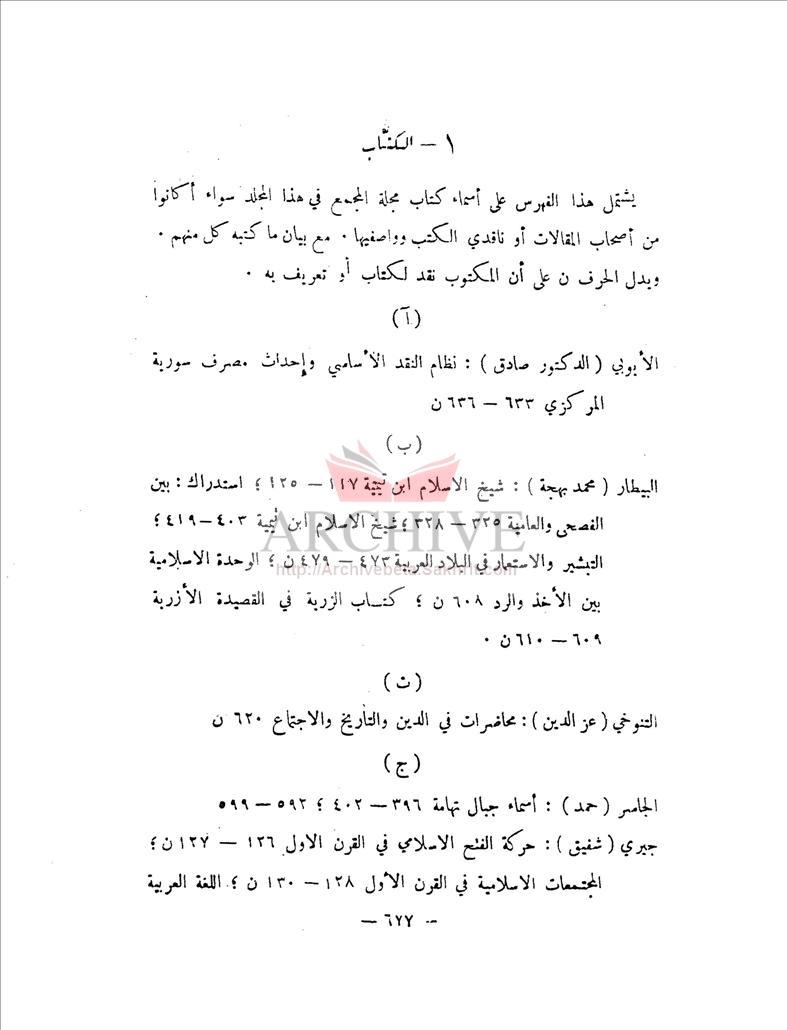 ١ — الكتّاب
يشتمل هذا الفهرس على أسماء كتاب مجلة المجمع في هذا المجلد سواء أكانوا
من أصحاب المقالات أو ناقدي الكتب وواصفيها ٠ مع بيان ما كتبه كل منهم ٠
ويدل الحرف ن على أن المكتوب نقد لكتاب أو تعريف به ٠
(آ)
الأيوبي ( الدكتور صادق ) : نظام النقد الأساسي وإحداث مصرف سورية
المركزي ٦٣٣ — ٦٣٦ ن
( ب )
البيطار ( محمد بهجة ) : شيخ الاسلام ابن تيمية ١١٧ — ١٢٥ ؛ استدراك : بين
الفصحى والعامية ٣٢٥ — ٣٢٨ ؛ شيخ الاسلام ابن تيمية ٤٠٣ — ٤١٩ ؛
ARCHIVE
التبشير والاستعمار في البلاد العربية ٤٧٣ — ٤٧٩ ن ؛ الوحدة الاسلامية
http://Archivebeta.Sakhrit.com
بين الأخذ والرد ٦٠٨ ن ؛ كتاب الزرية في القصيدة الأزرية
٦٠٩ — ٦١٠ ن ٠
( ت )
التنوخي ( عز الدين ) : محاضرات في الدين والتأريخ والاجتماع ٦٢٠ ن
( ج )
الجاسر ( حمد ) : أسماء جبال تهامة ٣٩٦ — ٤٠٢ ؛ ٥٩٢ — ٥٩٩
جبري ( شفيق ) : حركة الفتح الاسلامي في القرن الاول ١٢٦ — ١٢٧ ن ؛
المجتمعات الاسلامية في القرن الأول ١٢٨ — ١٣٠ ن ؛ اللغة العربية
— ٦٧٧ —